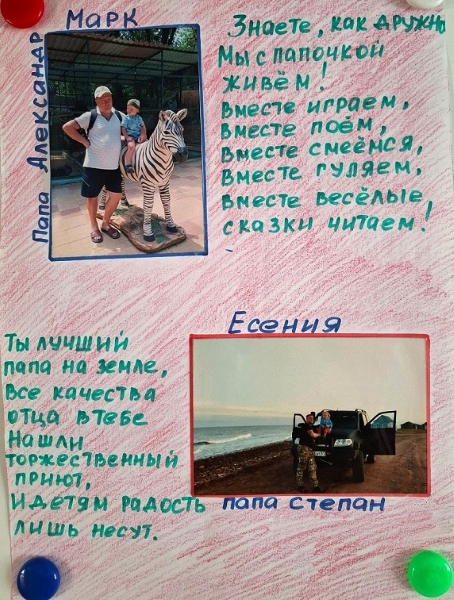 Марк
Папа Александр
Знаете, как дружно
Мы с папочкой
живём!
Вместе играем,
Вместе поём,
Вместе смеёмся,
Вместе гуляем,
Вместе весёлые,
сказки читаем!
Есения
Ты лучший
папа на земле,
Все качества
отца в тебе
Нашли
торжественный
приют,
И детям радость
лишь несут.
папа Степан